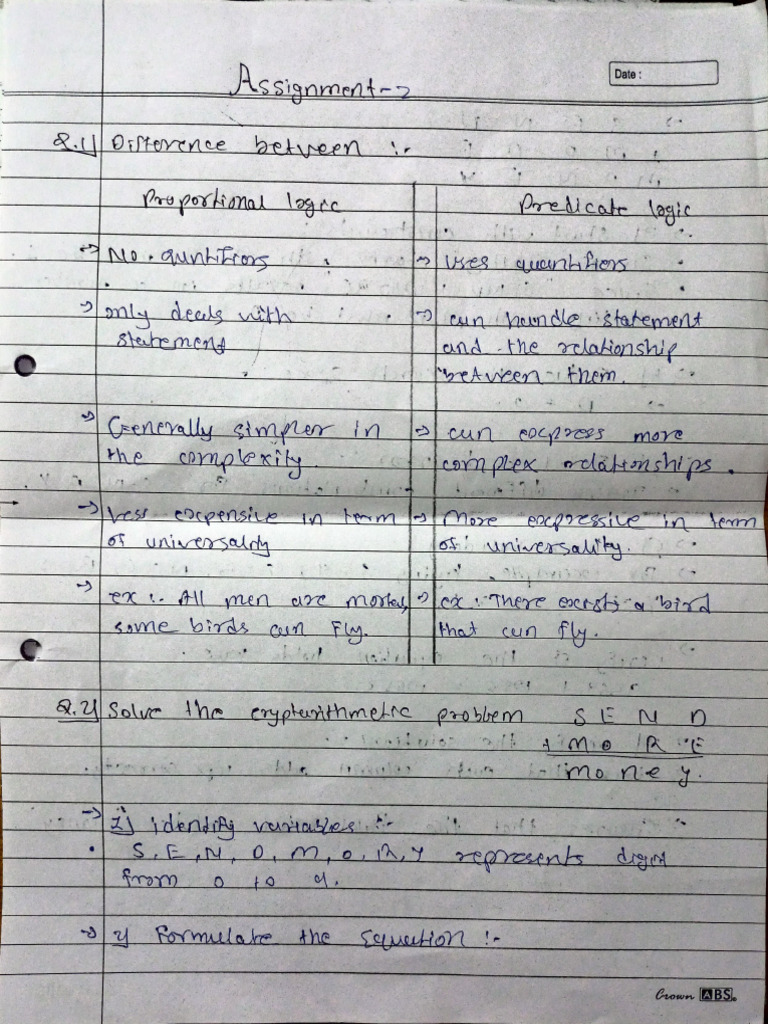 Assignment-2
Date :
Q.1] Difference between :-
Proportional logic
Predicate logic
→ No. quntifiors
→ Uses quantifiors
→ only deals with
statement
→ can handle statement
and the relationship
between them.
→ Generally simpler in
the complexity.
→ can excpress more
complex relationships.
→ Less excpensive in term
of universality
→ More excpressive in term
of universality.
→ ex :- All men are mortal,
some birds can fly.
→ ex : There excists a bird
that can fly.
Q.2] Solve the cryptarithmetic problem S E N D
+ M O R E
M O N E Y.
→ 1] identify variables :-
• S, E, N, D, M, O, R, Y represents digit
from 0 to 9.
→ 2] Formulate the Equation :-
Crown ABS.